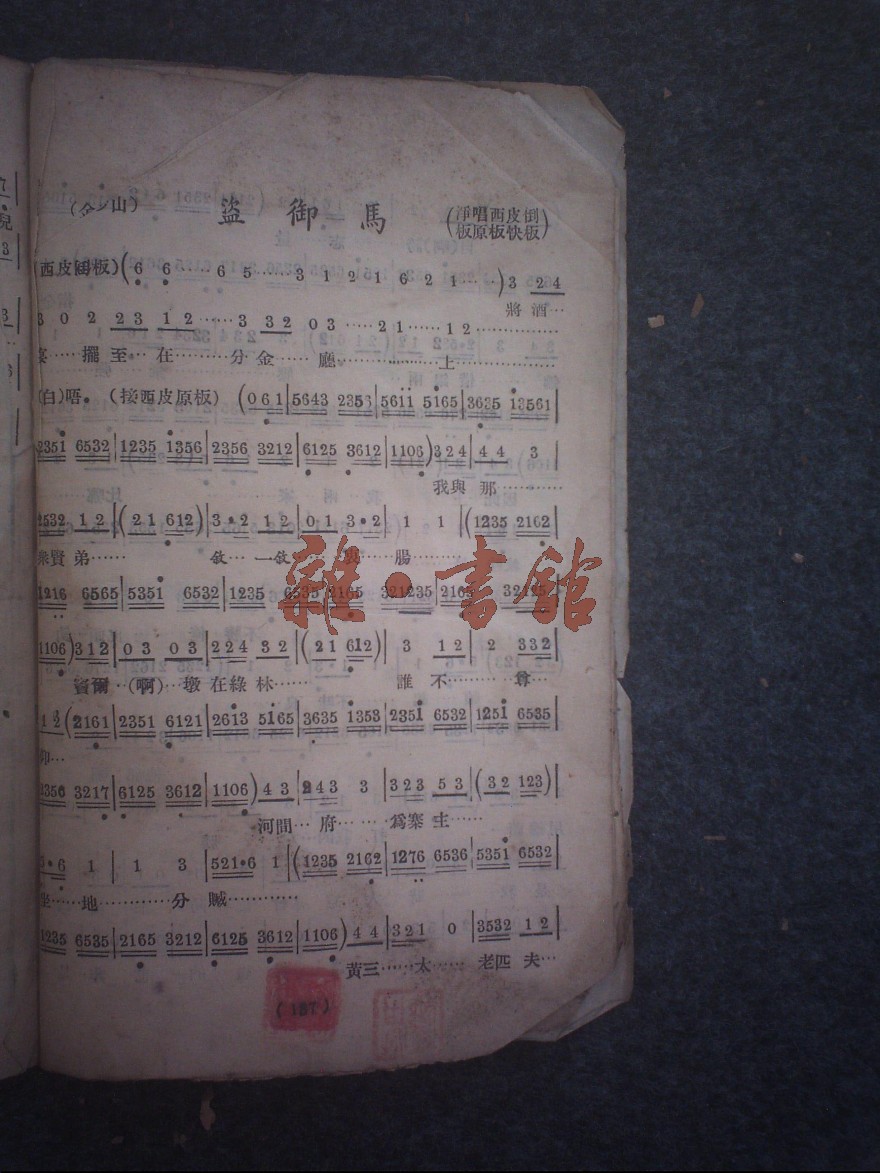 (金少山) 盜御馬 (淨唱西皮倒板原板快板)
(西皮倒板)(6 6……6 5……3 1 2 1 6 2 1……)3 2 4
將酒…
3 0 2 2 3 1 2……3 3 2 0 3……2 1……1 2……
宴……擺至…在……分金……廳……上……
(白)唔。(接西皮原板) (0 6 1|5643 2356|5611 5165|3635 13561|
2351 6532|1235 1356|2356 3212|6125 3612|1106)3 2 4|4 4 3|
我與那……
2532 1 2|(2 1 612)|3·2 1 2|0 1 3·2|1 1|(1235 2162|
眾賢弟…… 敘一敘……衷腸……
1216 6565|5351 6532|1235 6535|2165 321235|2165 32125|
1106)3 1 2|0 3 0 3|2 2 4 3 2|(2 1 612)|3 1 2|2 3 3 2|
竇爾…(啊)…墩在綠林…… 誰不……尊…
1 2(2161|2351 6121|2613 5165|3635 1353|2351 6532|1251 6535|
仰…
2356 3217|6125 3612|1106)4 3|2 4 3 3|3 2 3 5 3|(3 2 123)|
河間…府……爲寨主……
3·6 1|1 3|521·6 1|(1235 2162|1276 6536|5351 6532|
坐……地……分贓……
1235 6535|2165 3212|6125 3612|1106)4 4|3 2 1 0|3532 1 2|
黃三……太……老匹夫…
(187)
雜·書館